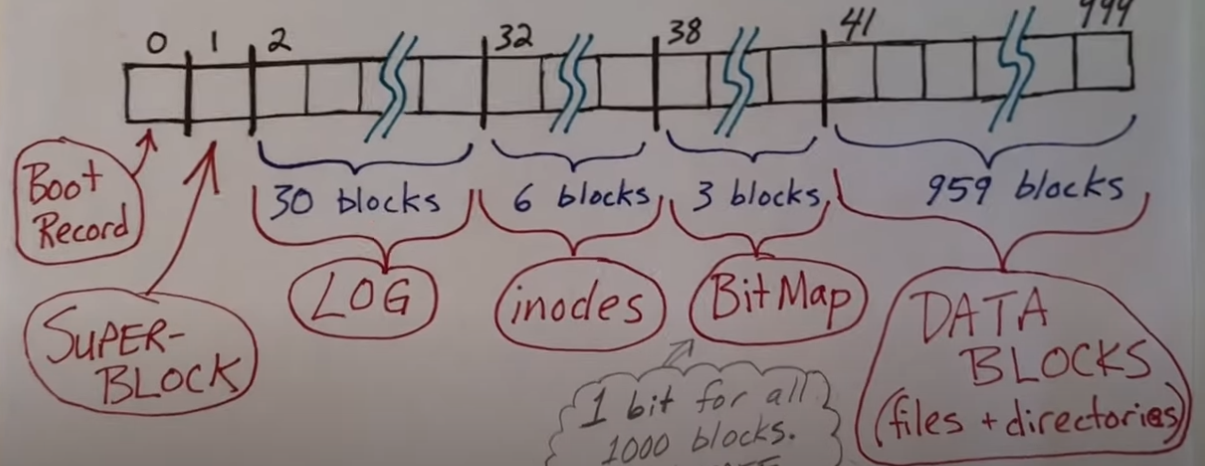 0 1 2 32 38 41 999
30 blocks 6 blocks 3 blocks 959 blocks
Boot
Record
SUPER-
BLOCK
LOG
inodes
BitMap
DATA
BLOCKS
(files + directories)
1 bit for all
1000 blocks.